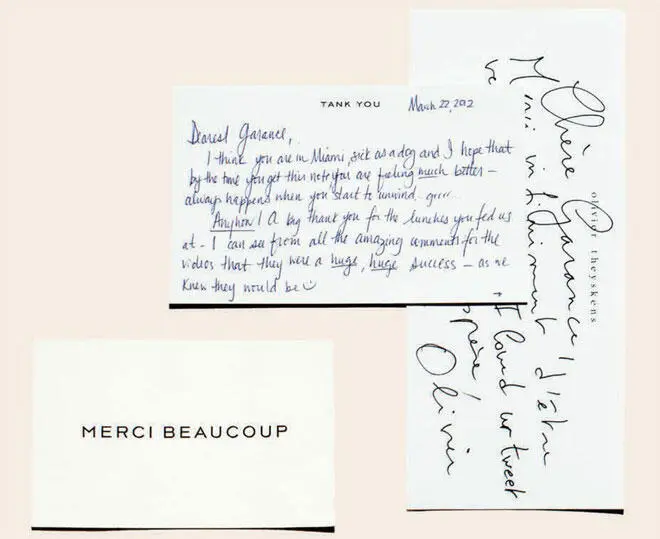 TANK YOU
March 22, 2012
Dearest Garance,
I think you are in Miami, sick as a dog and I hope that
by the time you get this note you are feeling much better –
always happens when you start to unwind.. grrr..
Anyhow! A big thank you for the lunches you fed us
at – I can see from all the amazing comments for the
videos that they were a huge, huge success – as we
knew they would be
MERCI BEAUCOUP
olivier theyskens
Chère Garance,
Merci infiniment d'être
Olivier